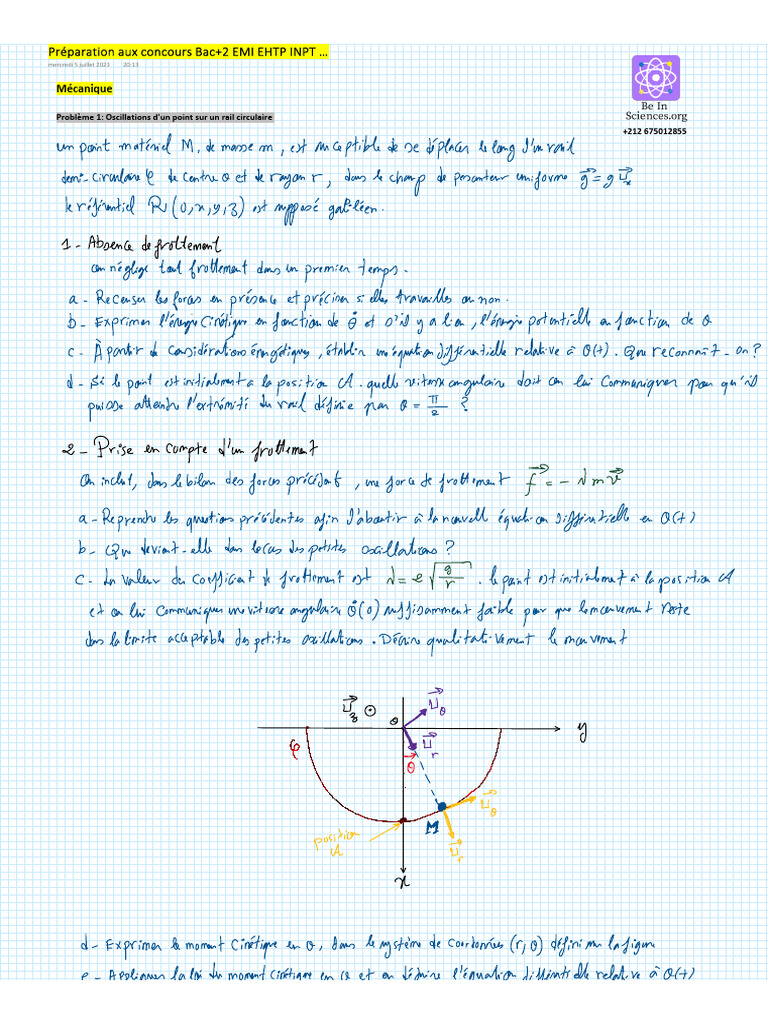 Préparation aux concours Bac+2 EMI EHTP INPT ...
mercredi 5 juillet 2023 20:13
Be In
Sciences.org
+212 675012855
Mécanique
Problème 1: Oscillations d'un point sur un rail circulaire
un point matériel M, de masse m, est susceptible de se déplacer le long d'un rail
demi-circulaire φ de centre O et de rayon r, dans le champ de pesanteur uniforme g⃗ = g U⃗x
le référentiel R(O,x,y,z) est supposé galiléen.
1 - Absence de frottement
on néglige tout frottement dans un premier temps.
a - Recenser les forces en présence et préciser si elles travailles ou non.
b - Exprimer l'énergie cinétique en fonction de θ̇ et s'il y a lieu, l'énergie potentielle en fonction de θ
c - À partir de considérations énergétiques, établir une équation différentielle relative à θ(t). Que reconnait-on?
d - Si le point est initialement a la position A. quelle vitesse angulaire doit on lui communiquer pour qu'il
puisse atteindre l'extrémité du rail définie par θ = π/2 ?
2 - Prise en compte d'un frottement
On inclut, dans le bilan des forces précédent, une force de frottement f⃗ = - λ m v⃗
a - Reprendre les questions précédentes afin d'aboutir à la nouvelle équation différentielle en θ(t)
b - Que devient-elle dans le cas des petites oscillations?
c - La valeur du coefficient de frottement est λ = 2 √(g/r). le point est initialement à la position A
et on lui communique une vitesse angulaire θ̇(0) suffisamment faible pour que le mouvement reste
dans la limite acceptable des petites oscillations. Décrire qualitativement le mouvement
U⃗z
O
U⃗θ
y
φ
U⃗r
θ
U⃗θ
position
A
M
U⃗r
x
d - Exprimer le moment cinétique en O, dans le système de coordonnées (r, θ) défini sur la figure
e - Appliquer la loi du moment cinétique en O et en déduire l'équation différentielle relative à θ(t)